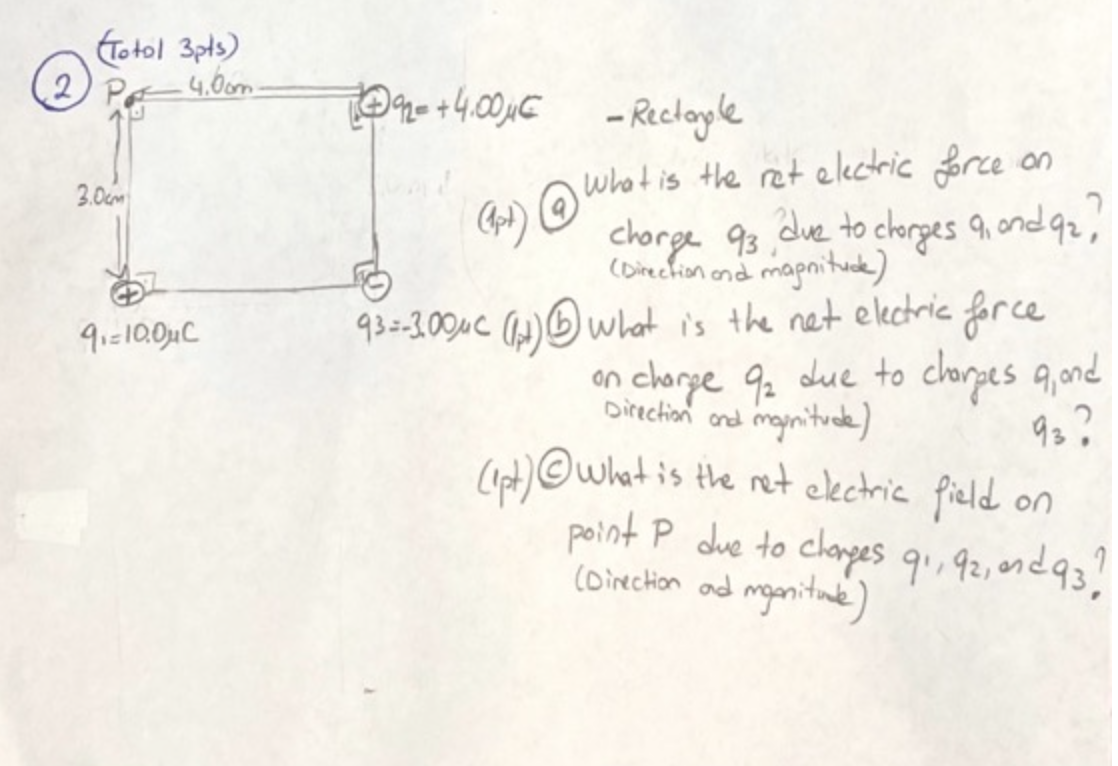 (Total 3pts)
2 P 4.0cm
q2= +4.00μC
- Rectangle
3.0cm
(1pt) a What is the net electric force on
charge q3, due to charges q1 and q2?
(Direction and magnitude)
q1=10.0μC
q3=-3.00μC (1pt) b What is the net electric force
on charge q2 due to charges q1 and
q3?
Direction and magnitude)
(1pt) c What is the net electric field on
point P due to charges q1, q2, and q3?
(Direction ad mganitude)